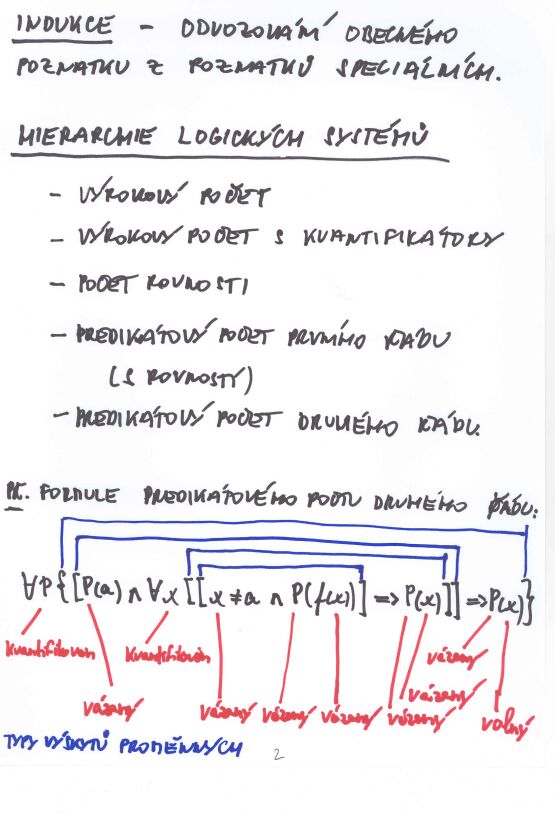 INDUKCE – ODVOZOVÁNÍ OBECNÉHO
POZNATKU Z POZNATKŮ SPECIÁLNÍCH.
HIERARCHIE LOGICKÝCH SYSTÉMŮ
– VÝROKOVÝ POČET
– VÝROKOVÝ POČET S KVANTIFIKÁTORY
– POČET ROVNOSTI
– PREDIKÁTOVÝ POČET PRVNÍHO ŘÁDU
(S ROVNOSTÍ)
– PREDIKÁTOVÝ POČET DRUHÉHO ŘÁDU.
PŘ. FORMULE PREDIKÁTOVÉHO POČTU DRUHÉHO ŘÁDU:
∀P{[P(a) ∧ ∀x[[x≠a ∧ P(f(x))] => P(x)]] => P(x)}
kvantifikován kvantifikován vázaný
vázaný vázaný vázaný vázaný vázaný vázaný volný
TYPY VÝSKYTŮ PROMĚNNÝCH
2